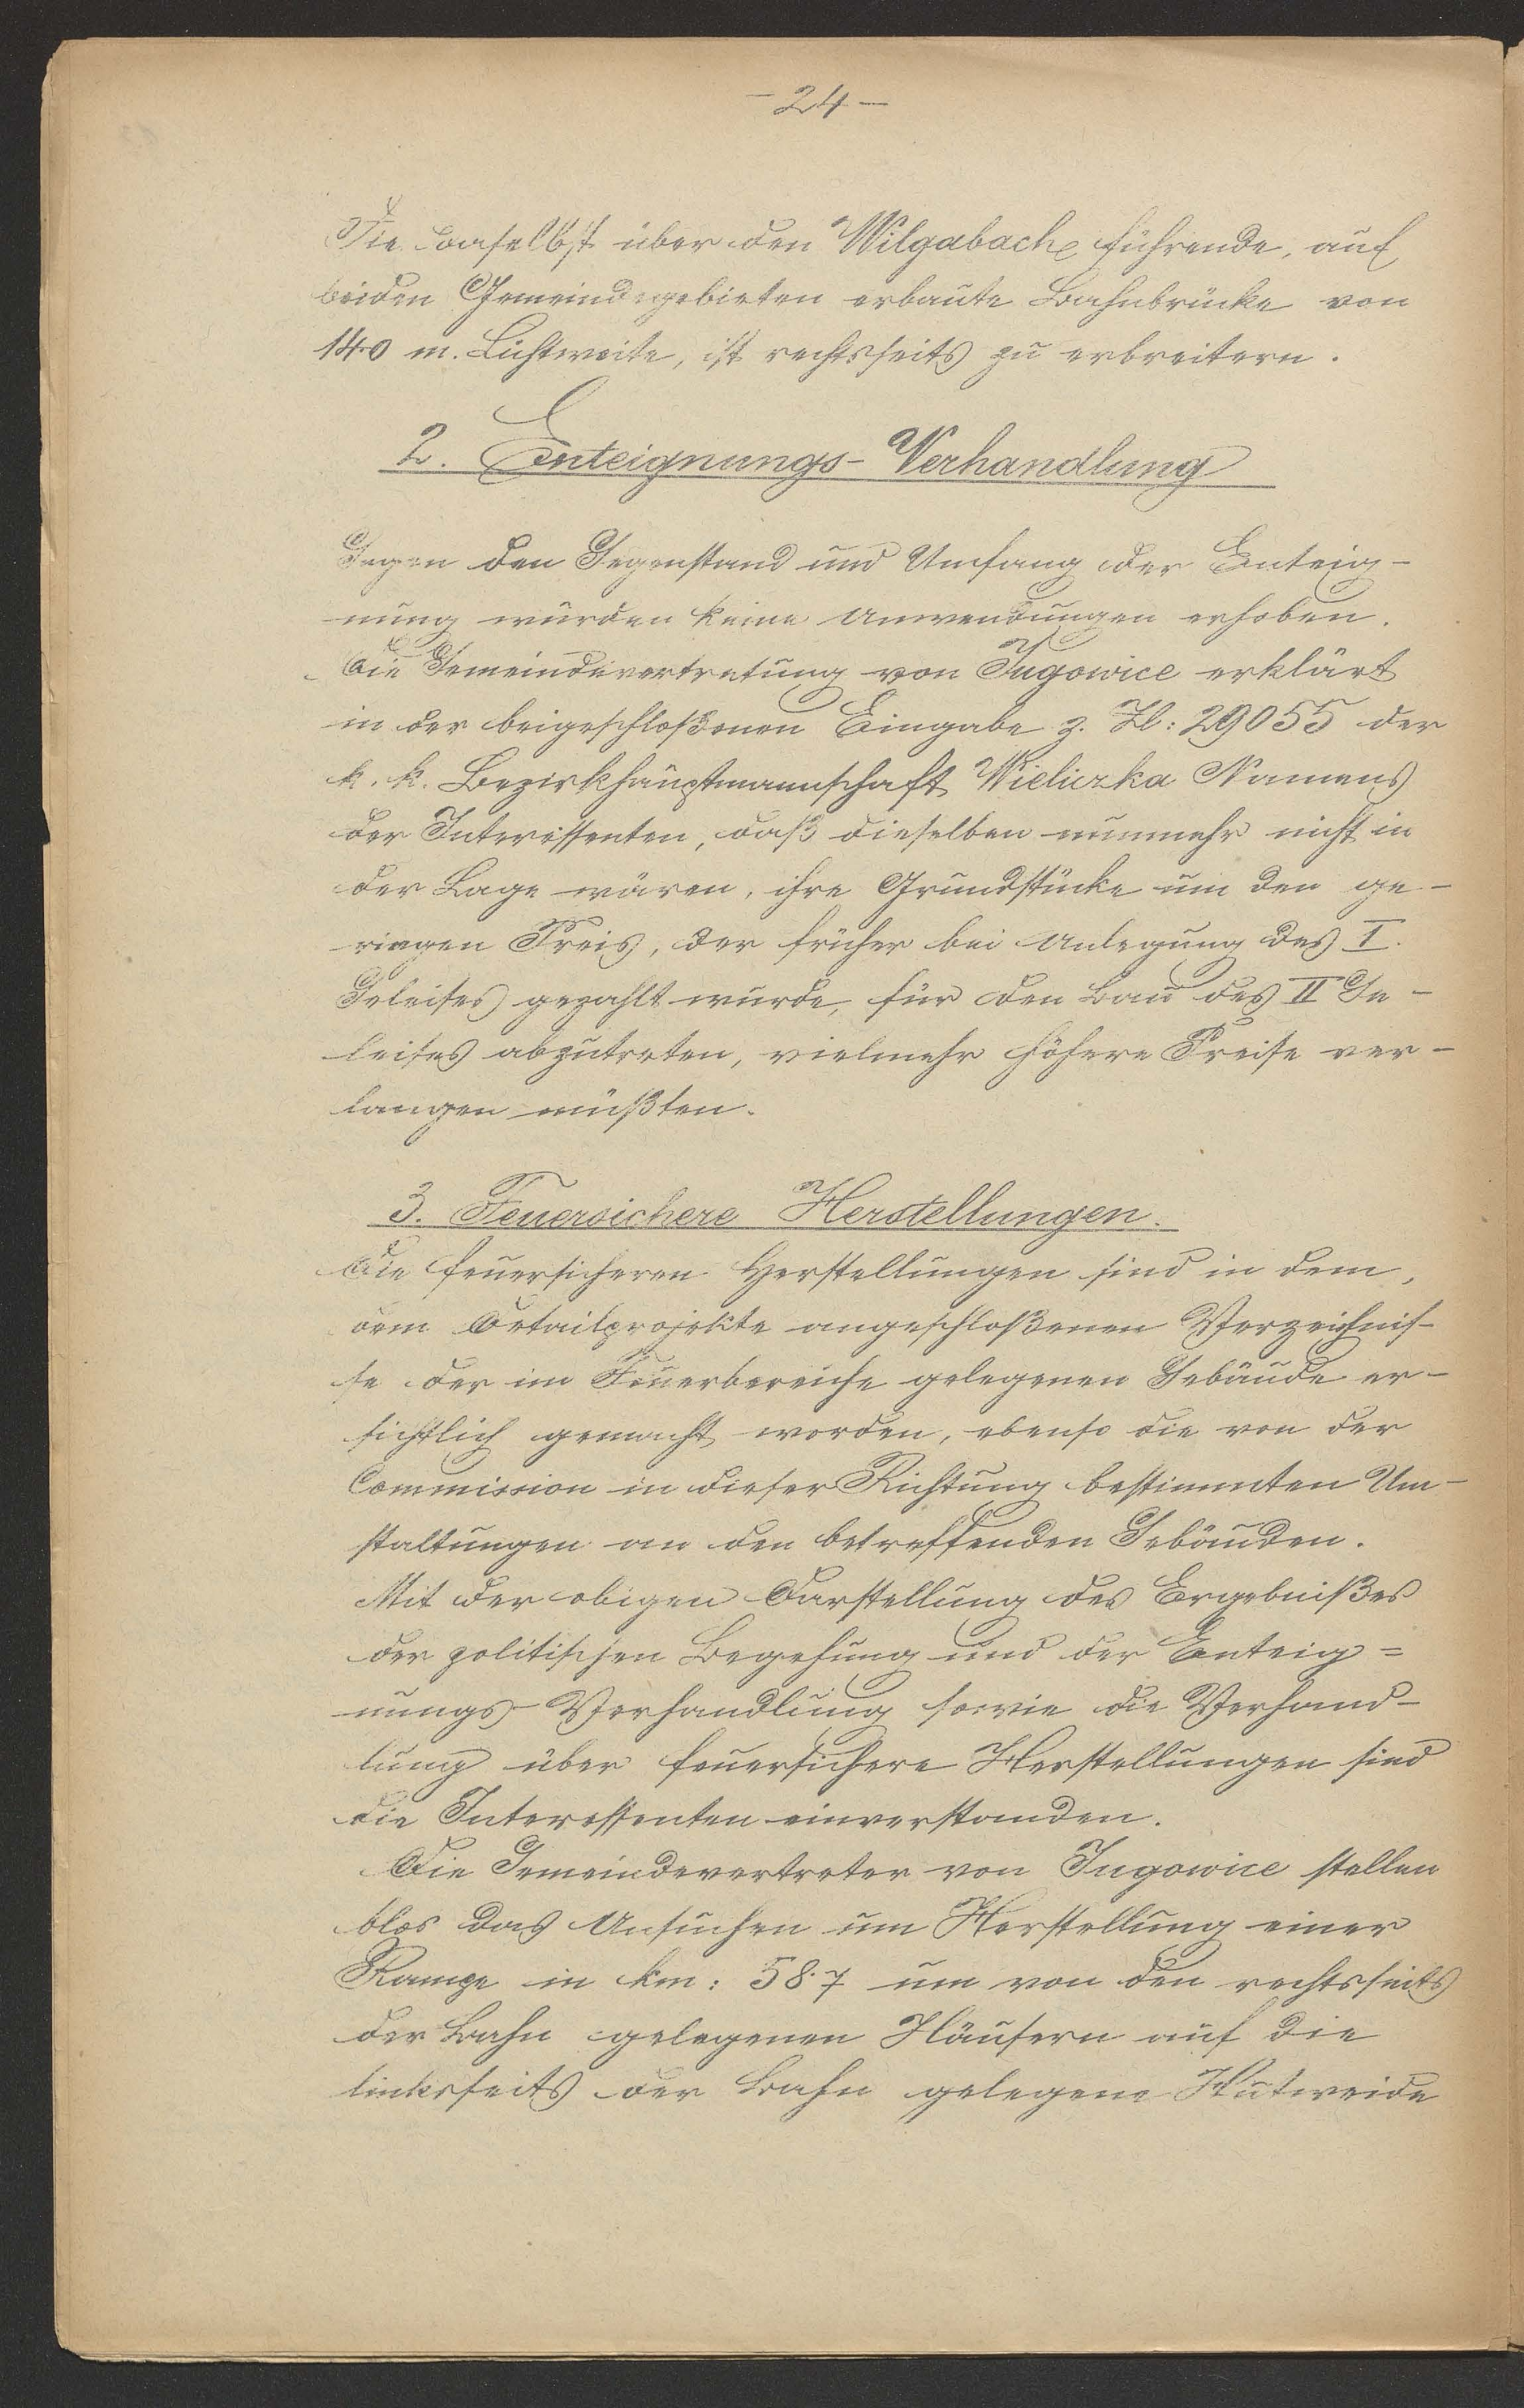 - 24 -
Die daselbst über den Wilgabache führende, auf
beiden Gemeindegebieten erbaute Bahnbrücke von
14·0 m. Lichtweite, ist rechtsseits zu erbreitern.
2. Enteignungs-Verhandlung
Gegen den Gegenstand und Umfang der Enteig-
nung wurden keine Anwendungen erhoben.
Die Gemeindevertretung von Jugowice erklärt
in der beigeschloßenen Eingabe z. Zl: 29055 der
k. k. Bezirkshauptmannschaft Wieliczka Namens
der Interessenten, daß dieselben nunmehr nicht in
der Lage wären, ihre Grundstücke um den ge-
ringen Preis, der früher bei Anlegung des I.
Geleises gezahlt wurde, für den Bau des II Ge-
leises abzutreten, vielmehr höhere Preise ver-
langen müßten.
3. Feuersichere Herstellungen.
Die feuersicheren Herstellungen sind in dem,
dem Detailprojekte angeschloßenen Verzeichnis-
se der im Feuerbereiche gelegenen Gebäude er-
sichtlich gemacht worden, ebenso die von der
Commission in dieser Richtung bestimmten Um-
staltungen an den betreffenden Gebäuden.
Mit der obigen Darstellung des Ergebnißes
der politischen Begehung und der Enteig=
nungs-Verhandlung sowie die Verhand-
lung über feuersichere Herstellungen sind
die Interessenten einverstanden.
Die Gemeindevertreter von Jugowice stellen
blos das Ansuchen um Herstellung einer
Rampe in km: 58·7 um von den rechtsseits
der Bahn gelegenen Häusern auf die
linksseits der Bahn gelegene Hutweide